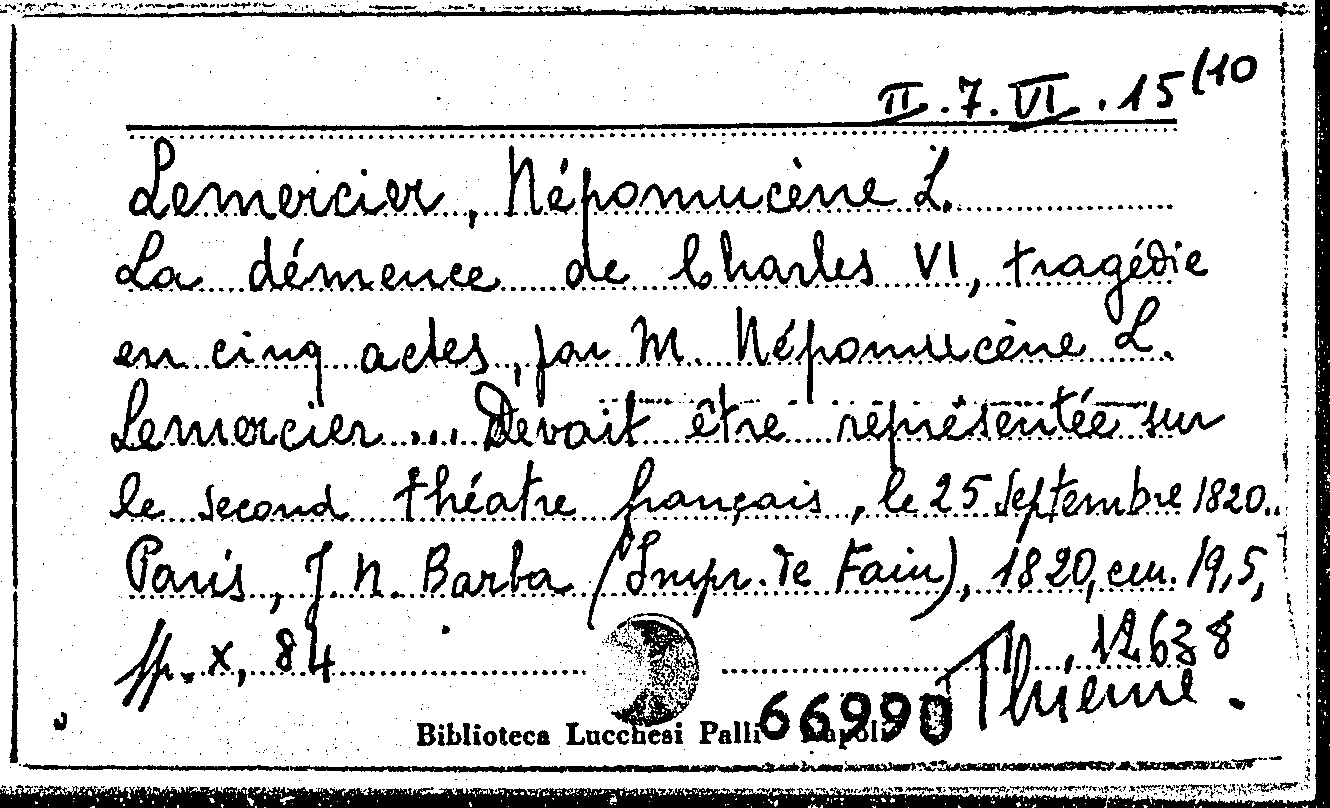 II.7.VI.15(10
Lemercier, Népomucène L.
La démence de Charles VI, tragédie
en cinq actes, par M. Népomucène L.
Lemercier... Devait être représentée sur
le second théatre français, le 25 Septembre 1820..
Paris, J. N. Barba (Impr. de Fain), 1820, cm. 19,5,
pp. x, 84
, 12638
Thieme.
66990
Biblioteca Lucchesi Palli - Napoli